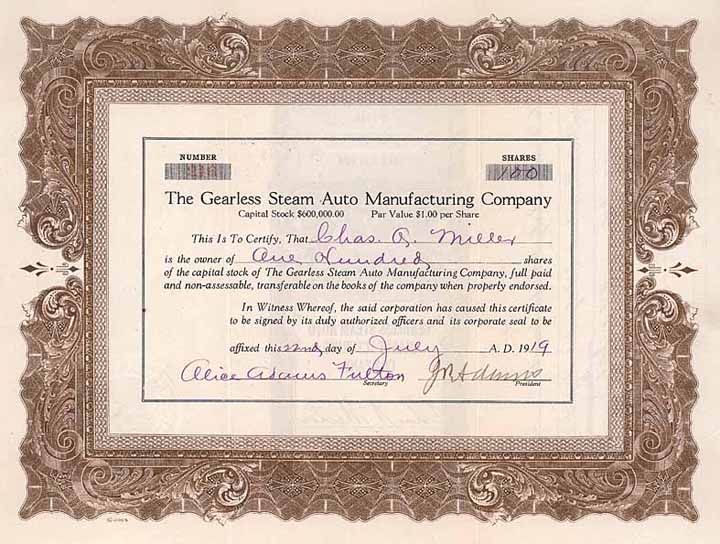 NUMBER SHARES
100
The Gearless Steam Auto Manufacturing Company
Capital Stock $600,000.00 Par Value $1.00 per Share
This Is To Certify, That Chas. Miller
is the owner of One Hundred shares
of the capital stock of The Gearless Steam Auto Manufacturing Company, full paid
and non-assessable, transferable on the books of the company when properly endorsed.
In Witness Whereof, the said corporation has caused this certificate
to be signed by its duly authorized officers and its corporate seal to be
affixed this 22nd day of July A. D. 1919
Alice Adams Fulton
Secretary President